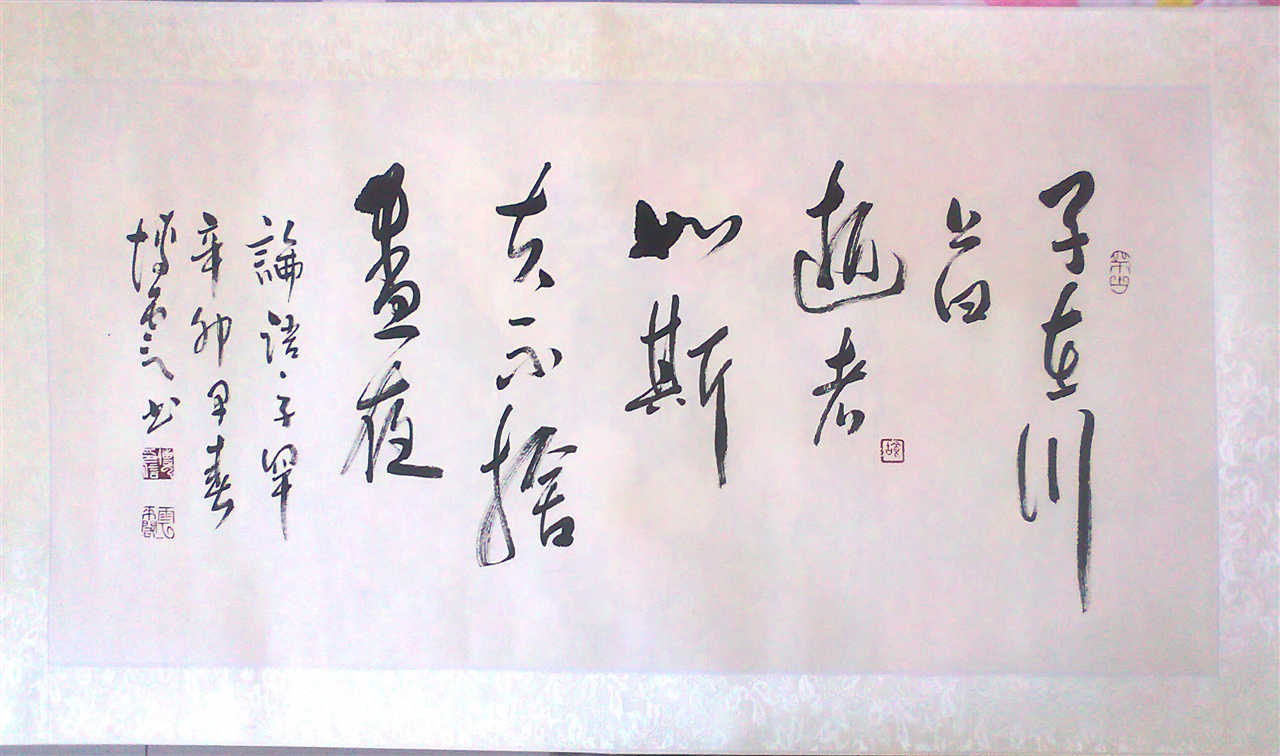 子在川
上曰
逝者
如斯
夫不捨
晝夜
論語·子罕
辛卯早春
书